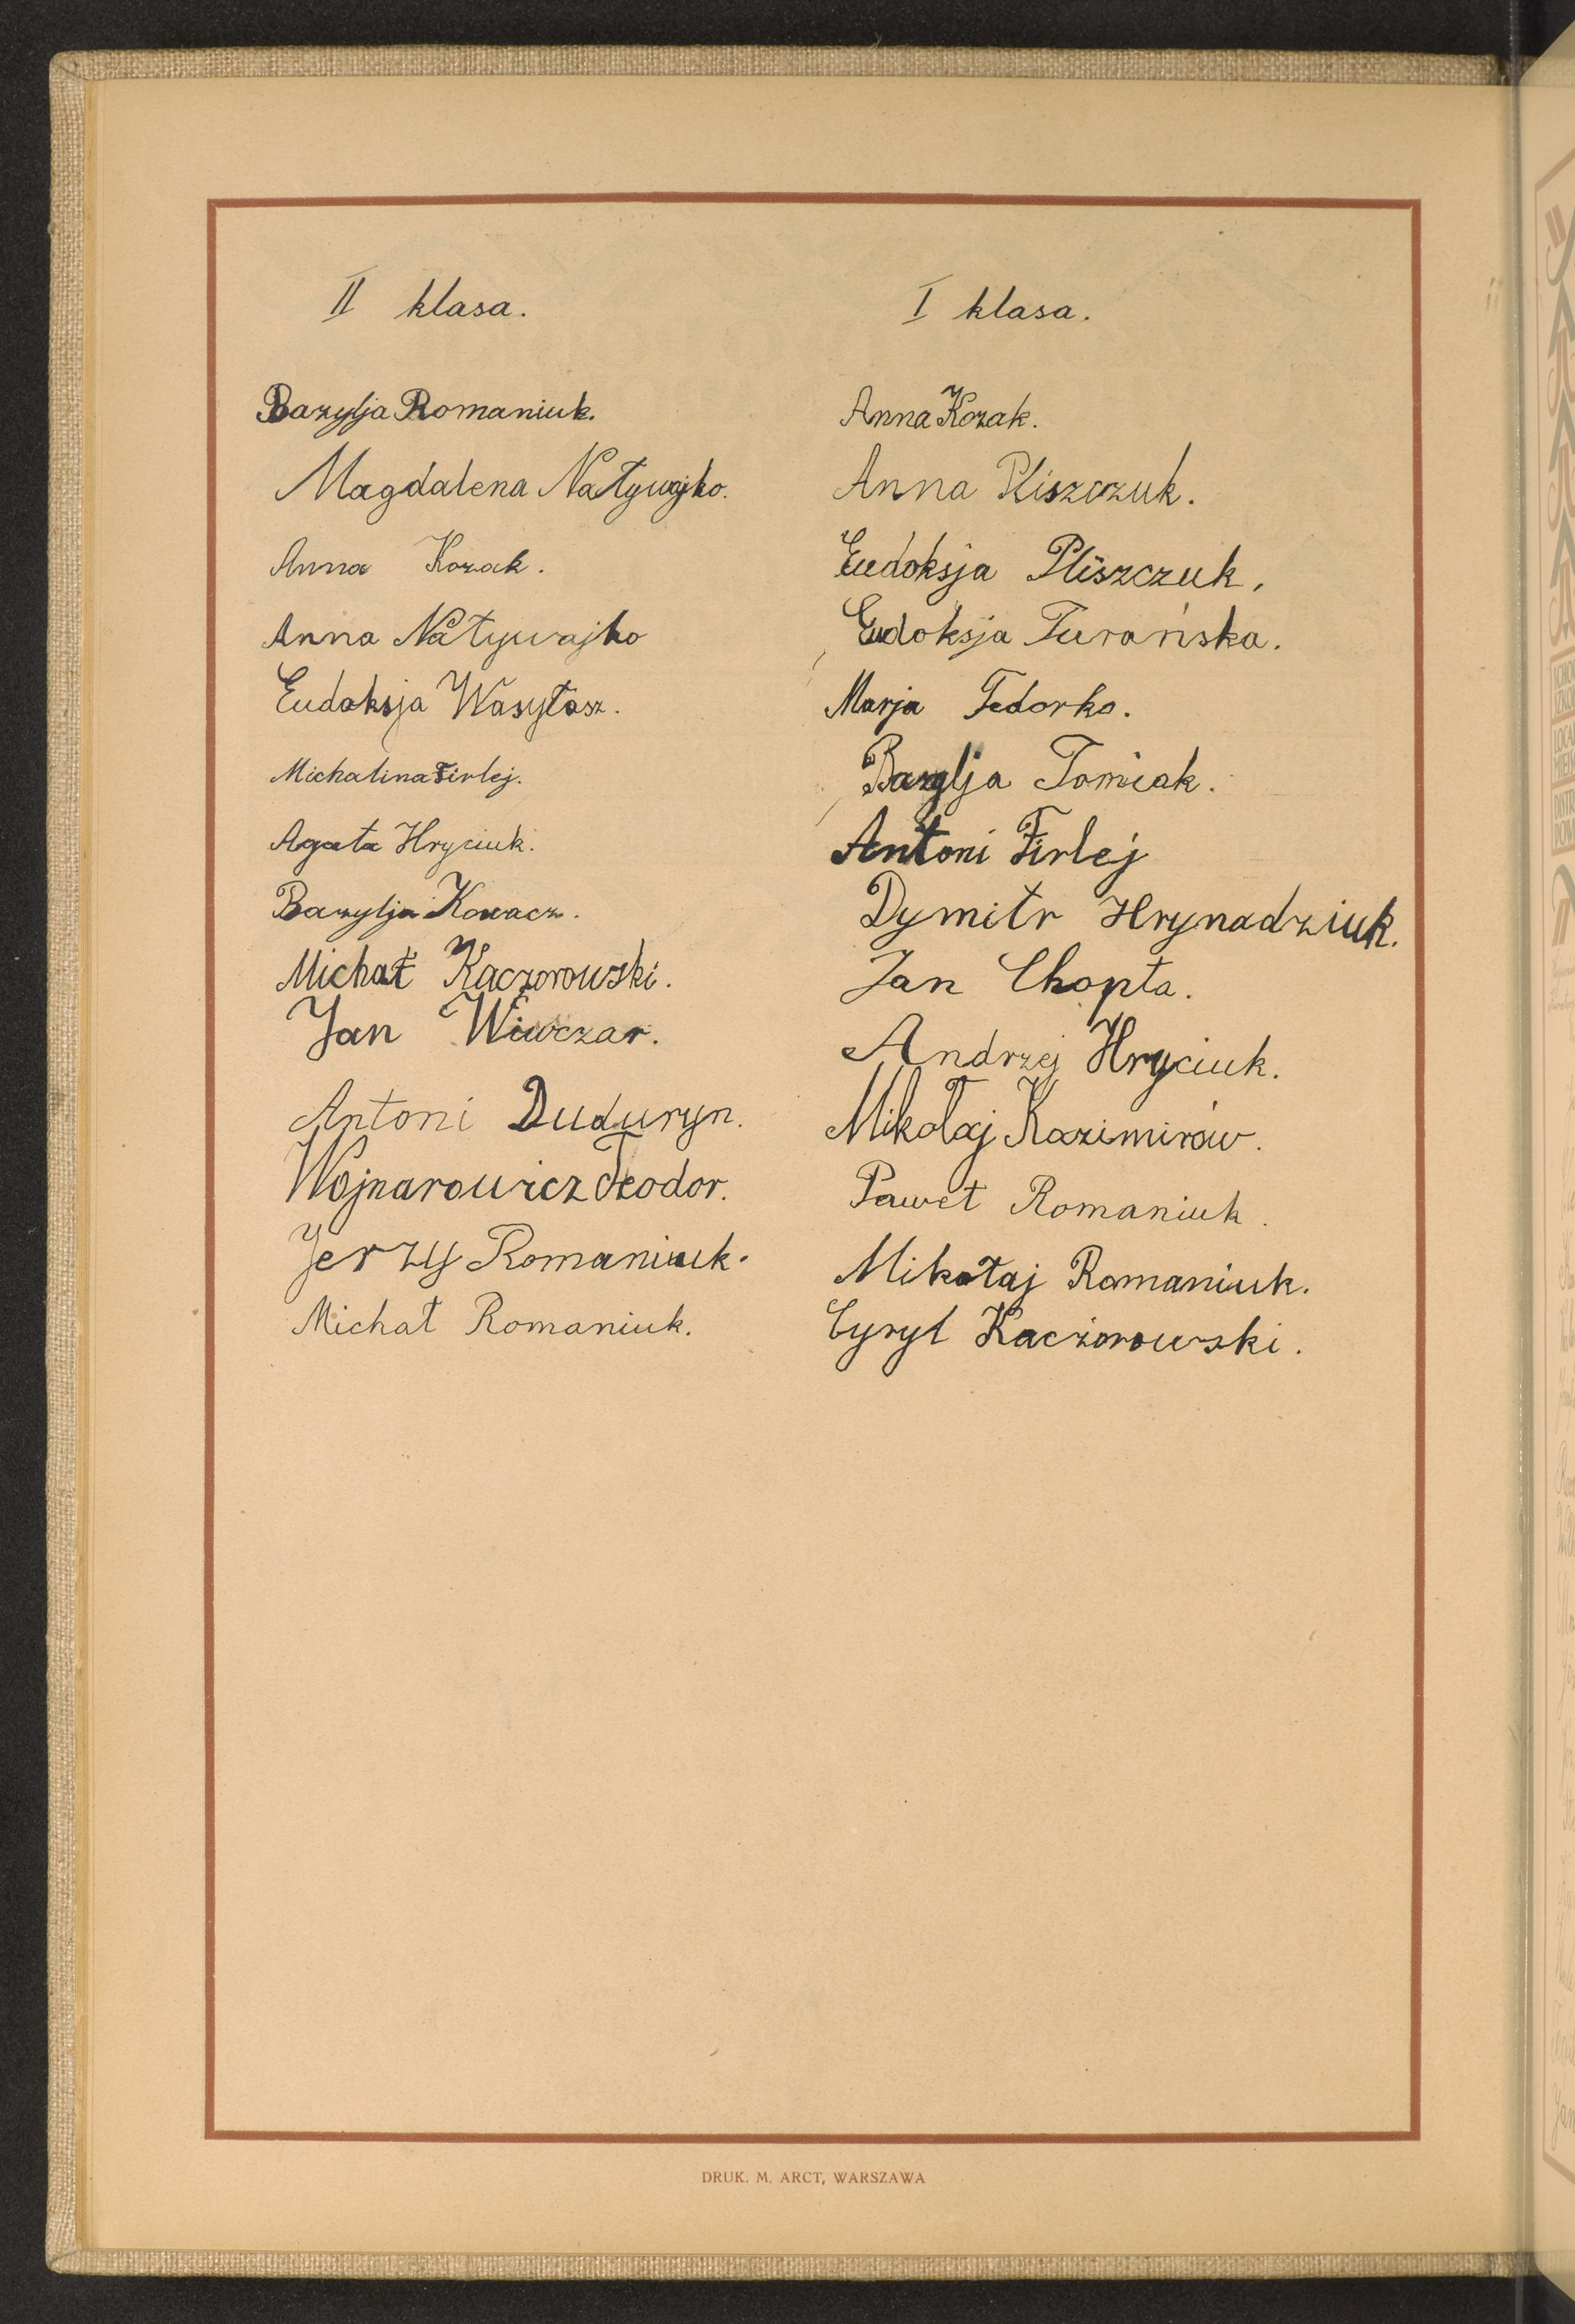 II klasa.
Bazylja Romaniuk.
Magdalena Natywajko.
Anna Kozak.
Anna Natywajko
Eudoksja Wasyłasz.
Michalina Firlej.
Agata Hryciuk.
Bazylja Kowacz.
Michał Kaczorowski.
Jan Wiwczar.
Antoni Duduryn.
Wojnarowicz Teodor.
Jerzy Romaniuk.
Michał Romaniuk.
I klasa.
Anna Kozak.
Anna Pliszczuk.
Eudoksja Pliszczuk.
Eudoksja Turańska.
Marja Fedorko.
Bazylja Tomiak.
Antoni Firlej
Dymitr Hrynadziuk.
Jan Chopta.
Andrzej Hryciuk.
Mikołaj Kazimirów.
Paweł Romaniuk.
Mikołaj Romaniuk.
Cyryl Kaczorowski.
DRUK. M. ARCT, WARSZAWA